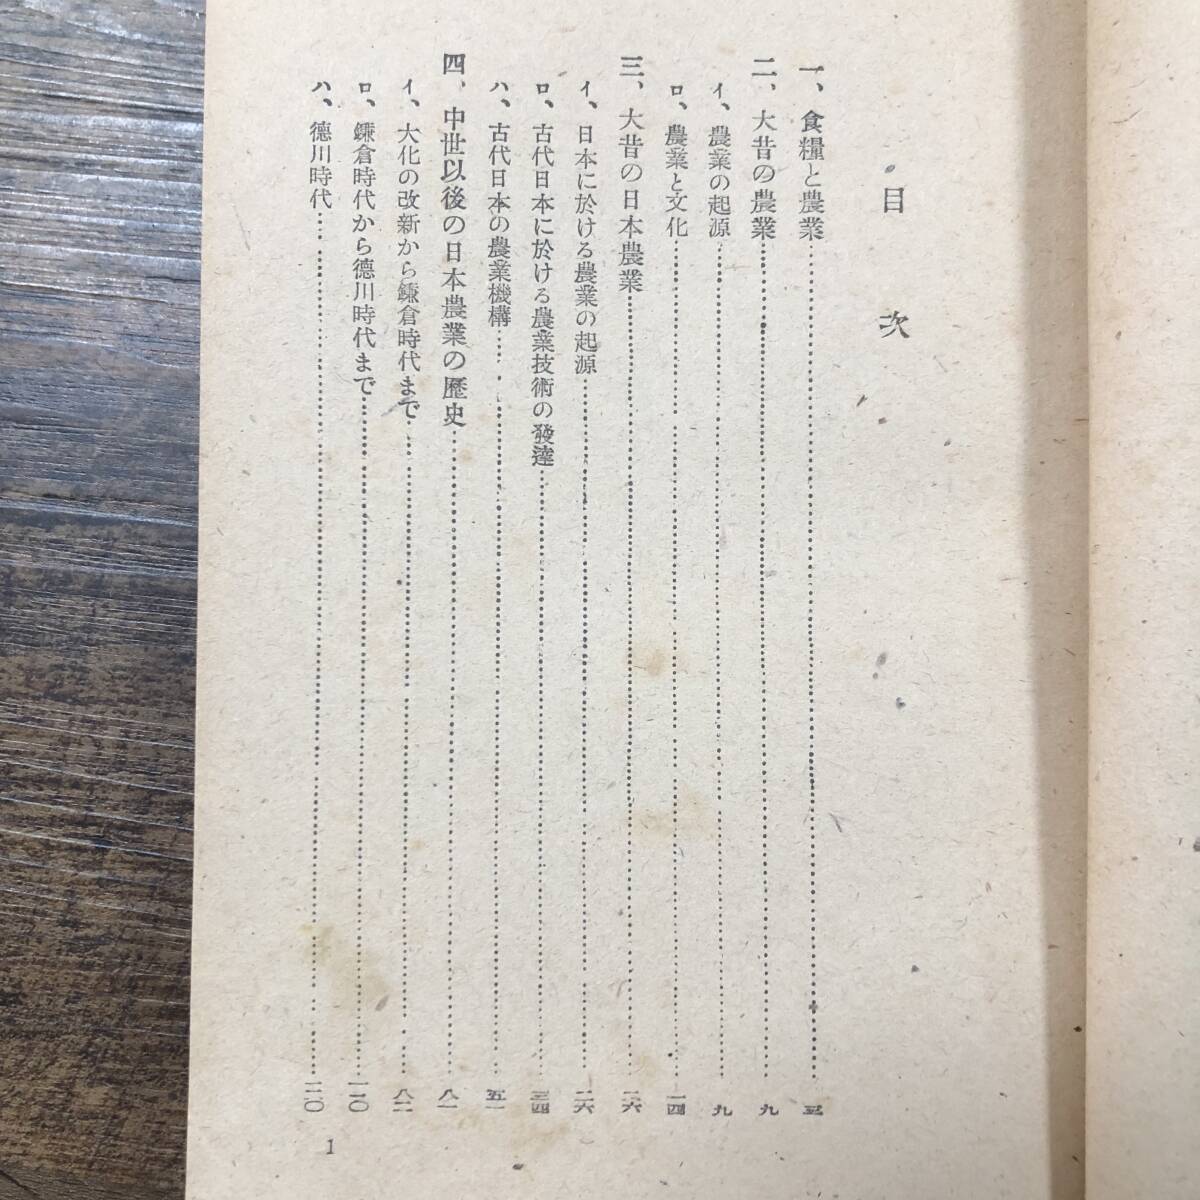 目次
一、食糧と農業……三
二、大昔の農業……九
イ、農業の起源……九
ロ、農業と文化……一四
三、大昔の日本農業……二六
イ、日本に於ける農業の起源……二六
ロ、古代日本に於ける農業技術の發達……三四
ハ、古代日本の農業機構……五一
四、中世以後の日本農業の歷史……八一
イ、大化の改新から鎌倉時代まで……八二
ロ、鎌倉時代から德川時代まで……
ハ、德川時代……
1